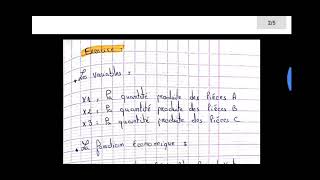 2/5
Exercice :
. Les variables :
x1 : la quantité produite des Pièces A
x2 : la quantité produite des Pièces B
x3 : la quantité produite des Pièces C
. La fonction économique :